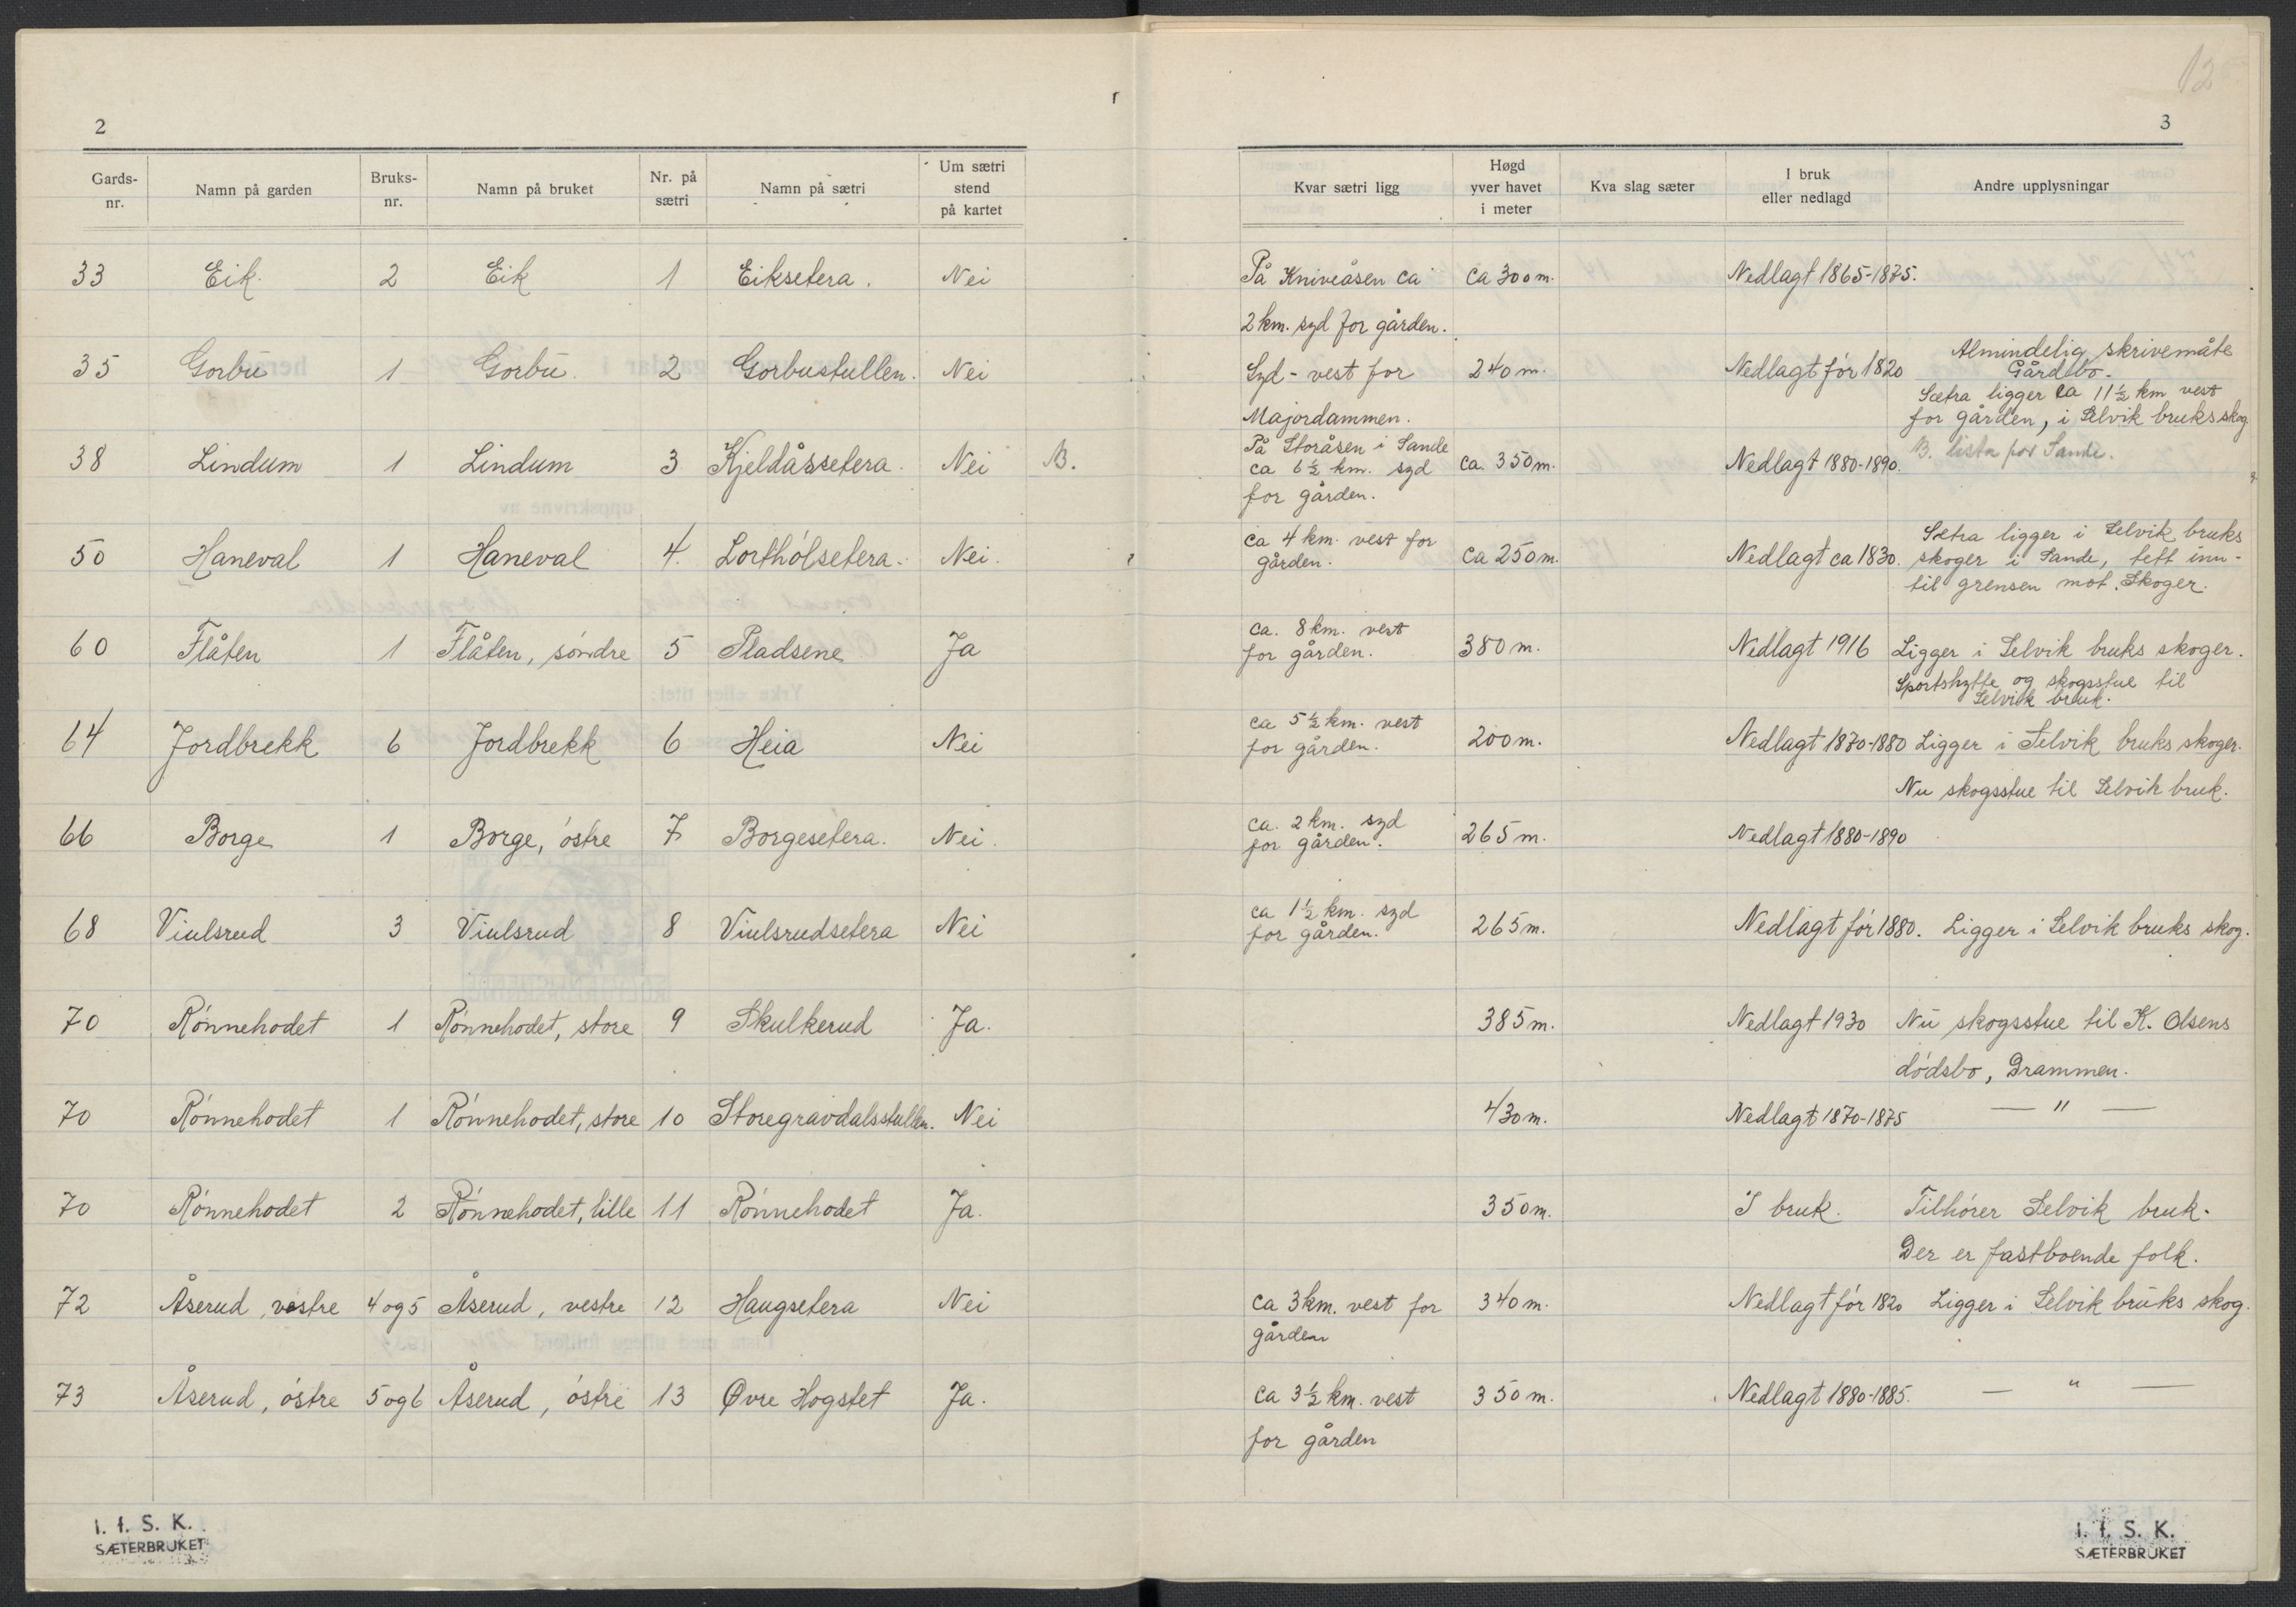 12
2
3
Gards-nr. Namn på garden Bruks-nr. Namn på bruket Nr. på sætri Namn på sætri Um sætri stend på kartet Kvar sætri ligg Høgd yver havet i meter Kva slag sæter I bruk eller nedlagd Andre upplysningar
33 Eik. 2 Eik 1 Eiksetera. Nei På Kniveåsen ca ca 300 m. Nedlagt 1865-1875.
2 km. syd for gården.
35 Gorbu 1 Gorbu. 2 Gorbustullen. Nei Syd-vest for 240 m. Nedlagt før 1820 Almindelig skrivemåte
Majordammen. Gårdbo.
Sætra ligger ca 11½ km vest
for gården, i Selvik bruks skog
38 Lindum 1 Lindum 3 Kjeldåssetera. Nei B. På Storåsen i Sande ca. 350 m. Nedlagt 1880-1890. B. lista for Sande.
ca 6½ km. syd
for gården.
50 Haneval 1 Haneval 4. Lorthølsetera. Nei. ca 4 km. vest for ca 250 m. Nedlagt ca 1830. Sætra ligger i Selvik bruks
gården. skoger i Sande, tett inn-
til grensen mot Skoger.
60 Flåten 1 Flåten, søndre 5 Pladsene Ja ca. 8 km. vest 380 m. Nedlagt 1916 Ligger i Selvik bruks skoger.
for gården. Sportshytte og skogsstue til
Selvik bruk.
64 Jordbrekk 6 Jordbrekk 6 Heia Nei ca 5½ km. vest 200 m. Nedlagt 1870-1880 Ligger i Selvik bruks skoger.
for gården. Nu skogsstue til Selvik bruk.
66 Borge 1 Borge, østre 7 Borgesetera. Nei. ca. 2 km. syd 265 m. Nedlagt 1880-1890
for gården.
68 Viulsrud 3 Viulsrud 8 Viulsrudsetera Nei ca 1½ km. syd 265 m. Nedlagt før 1880. Ligger i Selvik bruks skog.
for gården.
70 Rønnehodet 1 Rønnehodet, store 9 Skulkerud Ja. 385 m. Nedlagt 1930 Nu skogsstue til K. Olsens
dødsbo, Drammen.
70 Rønnehodet 1 Rønnehodet, store 10 Storegravdalsstullen. Nei 430 m. Nedlagt 1870-1875 — " —
70 Rønnehodet 2 Rønnehodet, lille 11 Rønnehodet Ja. 350 m. I bruk. Tilhører Selvik bruk.
Der er fastboende folk.
72 Åserud, vestre 4 og 5 Åserud, vestre 12 Haugsetera Nei ca 3 km. vest for 340 m. Nedlagt før 1820 Ligger i Selvik bruks skog.
gården
73 Åserud, østre 5 og 6 Åserud, østre 13 Øvre Hogstet Ja. ca 3½ km. vest 350 m. Nedlagt 1880-1885. — " —
for gården
I. f. S. K.
SÆTERBRUKET
I. f. S. K.
SÆTERBRUKET